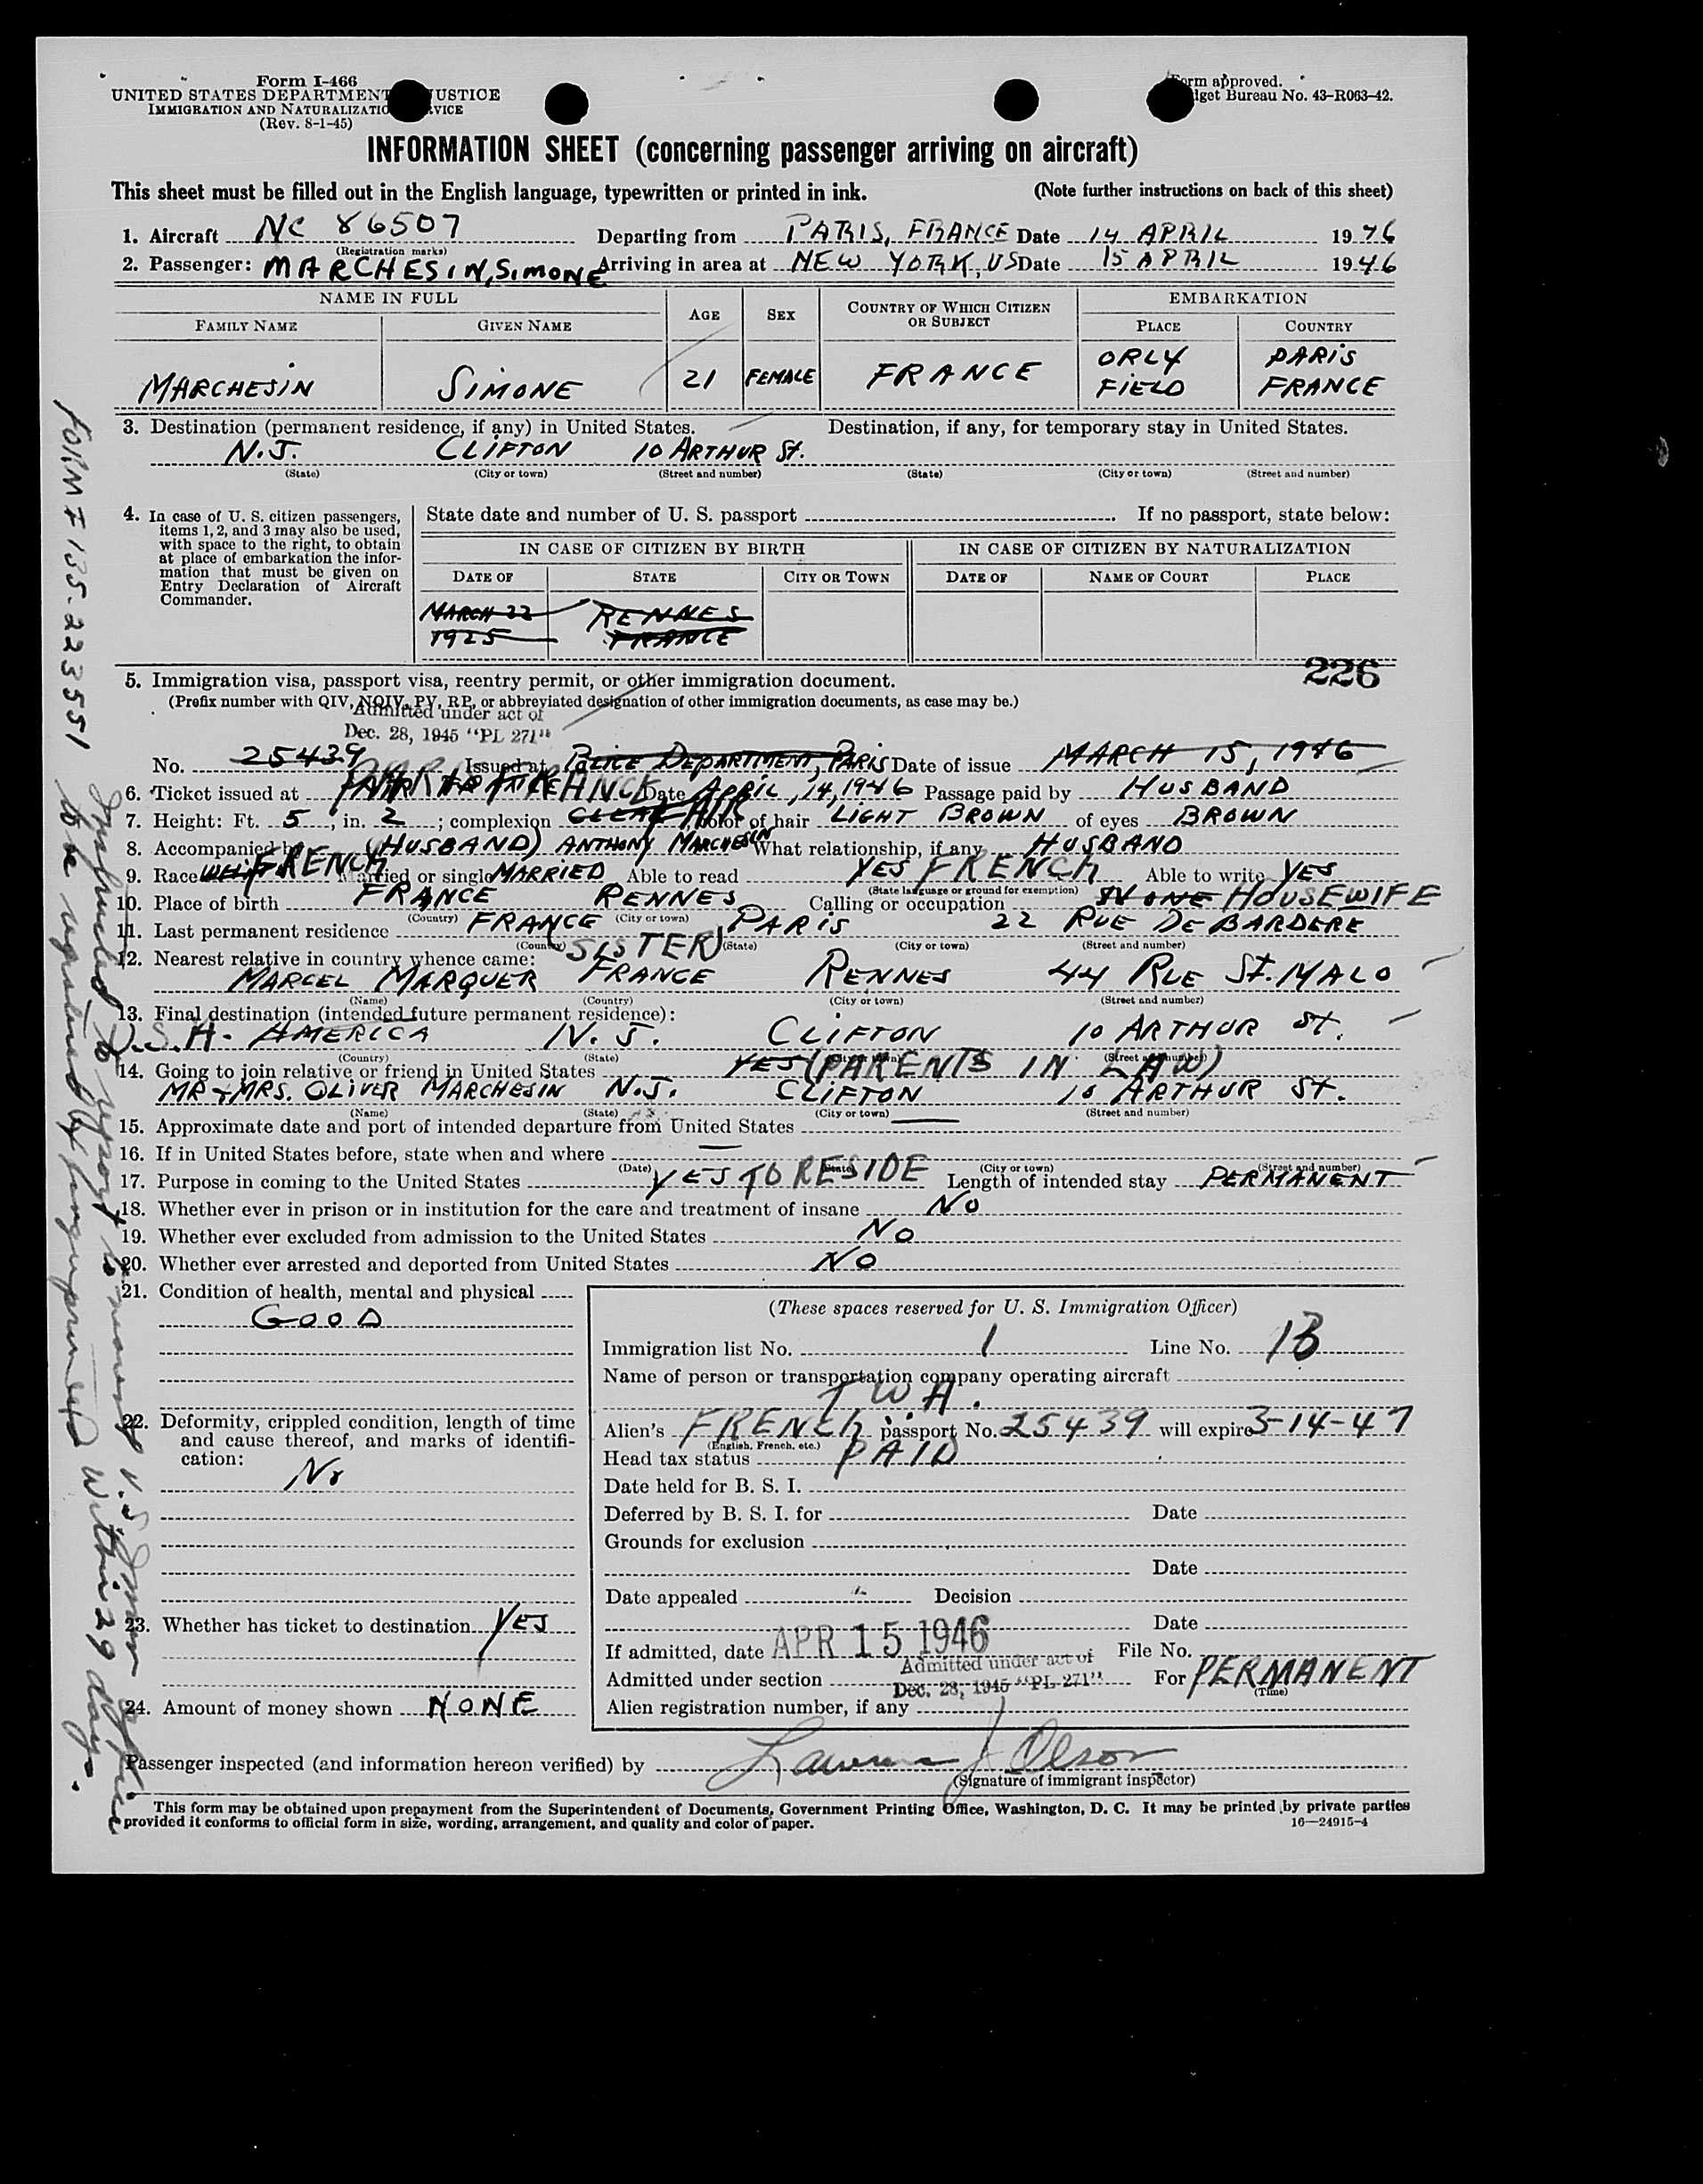 Form I-466
UNITED STATES DEPARTMENT USTICE
IMMIGRATION AND NATURALIZATIO VICE
(Rev. 8-1-45)
orm approved.
get Bureau No. 43-R063-42.
INFORMATION SHEET (concerning passenger arriving on aircraft)
This sheet must be filled out in the English language, typewritten or printed in ink. (Note further instructions on back of this sheet)
1. Aircraft NC 86507 Departing from PARIS, FRANCE Date 14 APRIL 1946
(Registration marks)
2. Passenger: MARCHESIN, SIMONE Arriving in area at NEW YORK, US Date 15 APRIL 1946
NAME IN FULL AGE SEX COUNTRY OF WHICH CITIZEN OR SUBJECT EMBARKATION
FAMILY NAME GIVEN NAME PLACE COUNTRY
MARCHESIN SIMONE 21 FEMALE FRANCE ORLY FIELD PARIS FRANCE
3. Destination (permanent residence, if any) in United States. Destination, if any, for temporary stay in United States.
N.J. CLIFTON 10 ARTHUR St.
(State) (City or town) (Street and number) (State) (City or town) (Street and number)
4. In case of U. S. citizen passengers, items 1, 2, and 3 may also be used, with space to the right, to obtain at place of embarkation the information that must be given on Entry Declaration of Aircraft Commander.
State date and number of U. S. passport If no passport, state below:
IN CASE OF CITIZEN BY BIRTH IN CASE OF CITIZEN BY NATURALIZATION
DATE OF STATE CITY OR TOWN DATE OF NAME OF COURT PLACE
MARCH 22 RENNES
1925 FRANCE
226
5. Immigration visa, passport visa, reentry permit, or other immigration document.
(Prefix number with QIV, NQIV, PV, RP, or abbreviated designation of other immigration documents, as case may be.)
Admitted under act of
Dec. 28, 1945 "PL 271"
No. 25439 Issued at POLICE DEPARTMENT, PARIS Date of issue MARCH 15, 1946
6. Ticket issued at PARIS FRANCE Date APRIL, 14, 1946 Passage paid by HUSBAND
7. Height: Ft. 5, in. 2; complexion CLEAR FAIR color of hair LIGHT BROWN of eyes BROWN
8. Accompanied by (HUSBAND) ANTHONY MARCHESIN What relationship, if any HUSBAND
9. Race FRENCH Married or single MARRIED Able to read YES FRENCH Able to write YES
(State language or ground for exemption)
10. Place of birth FRANCE RENNES Calling or occupation NONE HOUSEWIFE
(Country) (City or town)
11. Last permanent residence FRANCE PARIS 22 RUE DE BARDERE
(Country) (State) (City or town) (Street and number)
12. Nearest relative in country whence came: (SISTER)
MARCEL MARQUER FRANCE RENNES 44 RUE St. MALO
(Name) (Country) (City or town) (Street and number)
13. Final destination (intended future permanent residence):
U.S.A. AMERICA N.J. CLIFTON 10 ARTHUR St.
(Country) (State) (City or town) (Street and number)
14. Going to join relative or friend in United States YES (PARENTS IN LAW)
MR & MRS. OLIVER MARCHESIN N.J. CLIFTON 10 ARTHUR St.
(Name) (State) (City or town) (Street and number)
15. Approximate date and port of intended departure from United States
16. If in United States before, state when and where
(Date) (State) (City or town) (Street and number)
17. Purpose in coming to the United States YES TO RESIDE Length of intended stay PERMANENT
18. Whether ever in prison or in institution for the care and treatment of insane NO
19. Whether ever excluded from admission to the United States NO
20. Whether ever arrested and deported from United States NO
21. Condition of health, mental and physical
GOOD
22. Deformity, crippled condition, length of time and cause thereof, and marks of identification:
No
23. Whether has ticket to destination YES
24. Amount of money shown NONE
(These spaces reserved for U. S. Immigration Officer)
Immigration list No. 1 Line No. 13
Name of person or transportation company operating aircraft
T.W.A.
Alien's FRENCH passport No. 25439 will expire 3-14-47
(English, French, etc.)
Head tax status PAID
Date held for B. S. I.
Deferred by B. S. I. for Date
Grounds for exclusion
Date
Date appealed Decision
Date
If admitted, date APR 15 1946 File No.
Admitted under act of
Admitted under section Dec. 28, 1945 "PL 271" For PERMANENT
(Time)
Alien registration number, if any
Passenger inspected (and information hereon verified) by Lawrence J Olson
(Signature of immigrant inspector)
This form may be obtained upon prepayment from the Superintendent of Documents, Government Printing Office, Washington, D. C. It may be printed by private parties
provided it conforms to official form in size, wording, arrangement, and quality and color of paper. 16—24915-4
FORM I 135-223551
Instructed to report to nearest U.S. Immn Office
to be registered & fingerprinted within 29 days.